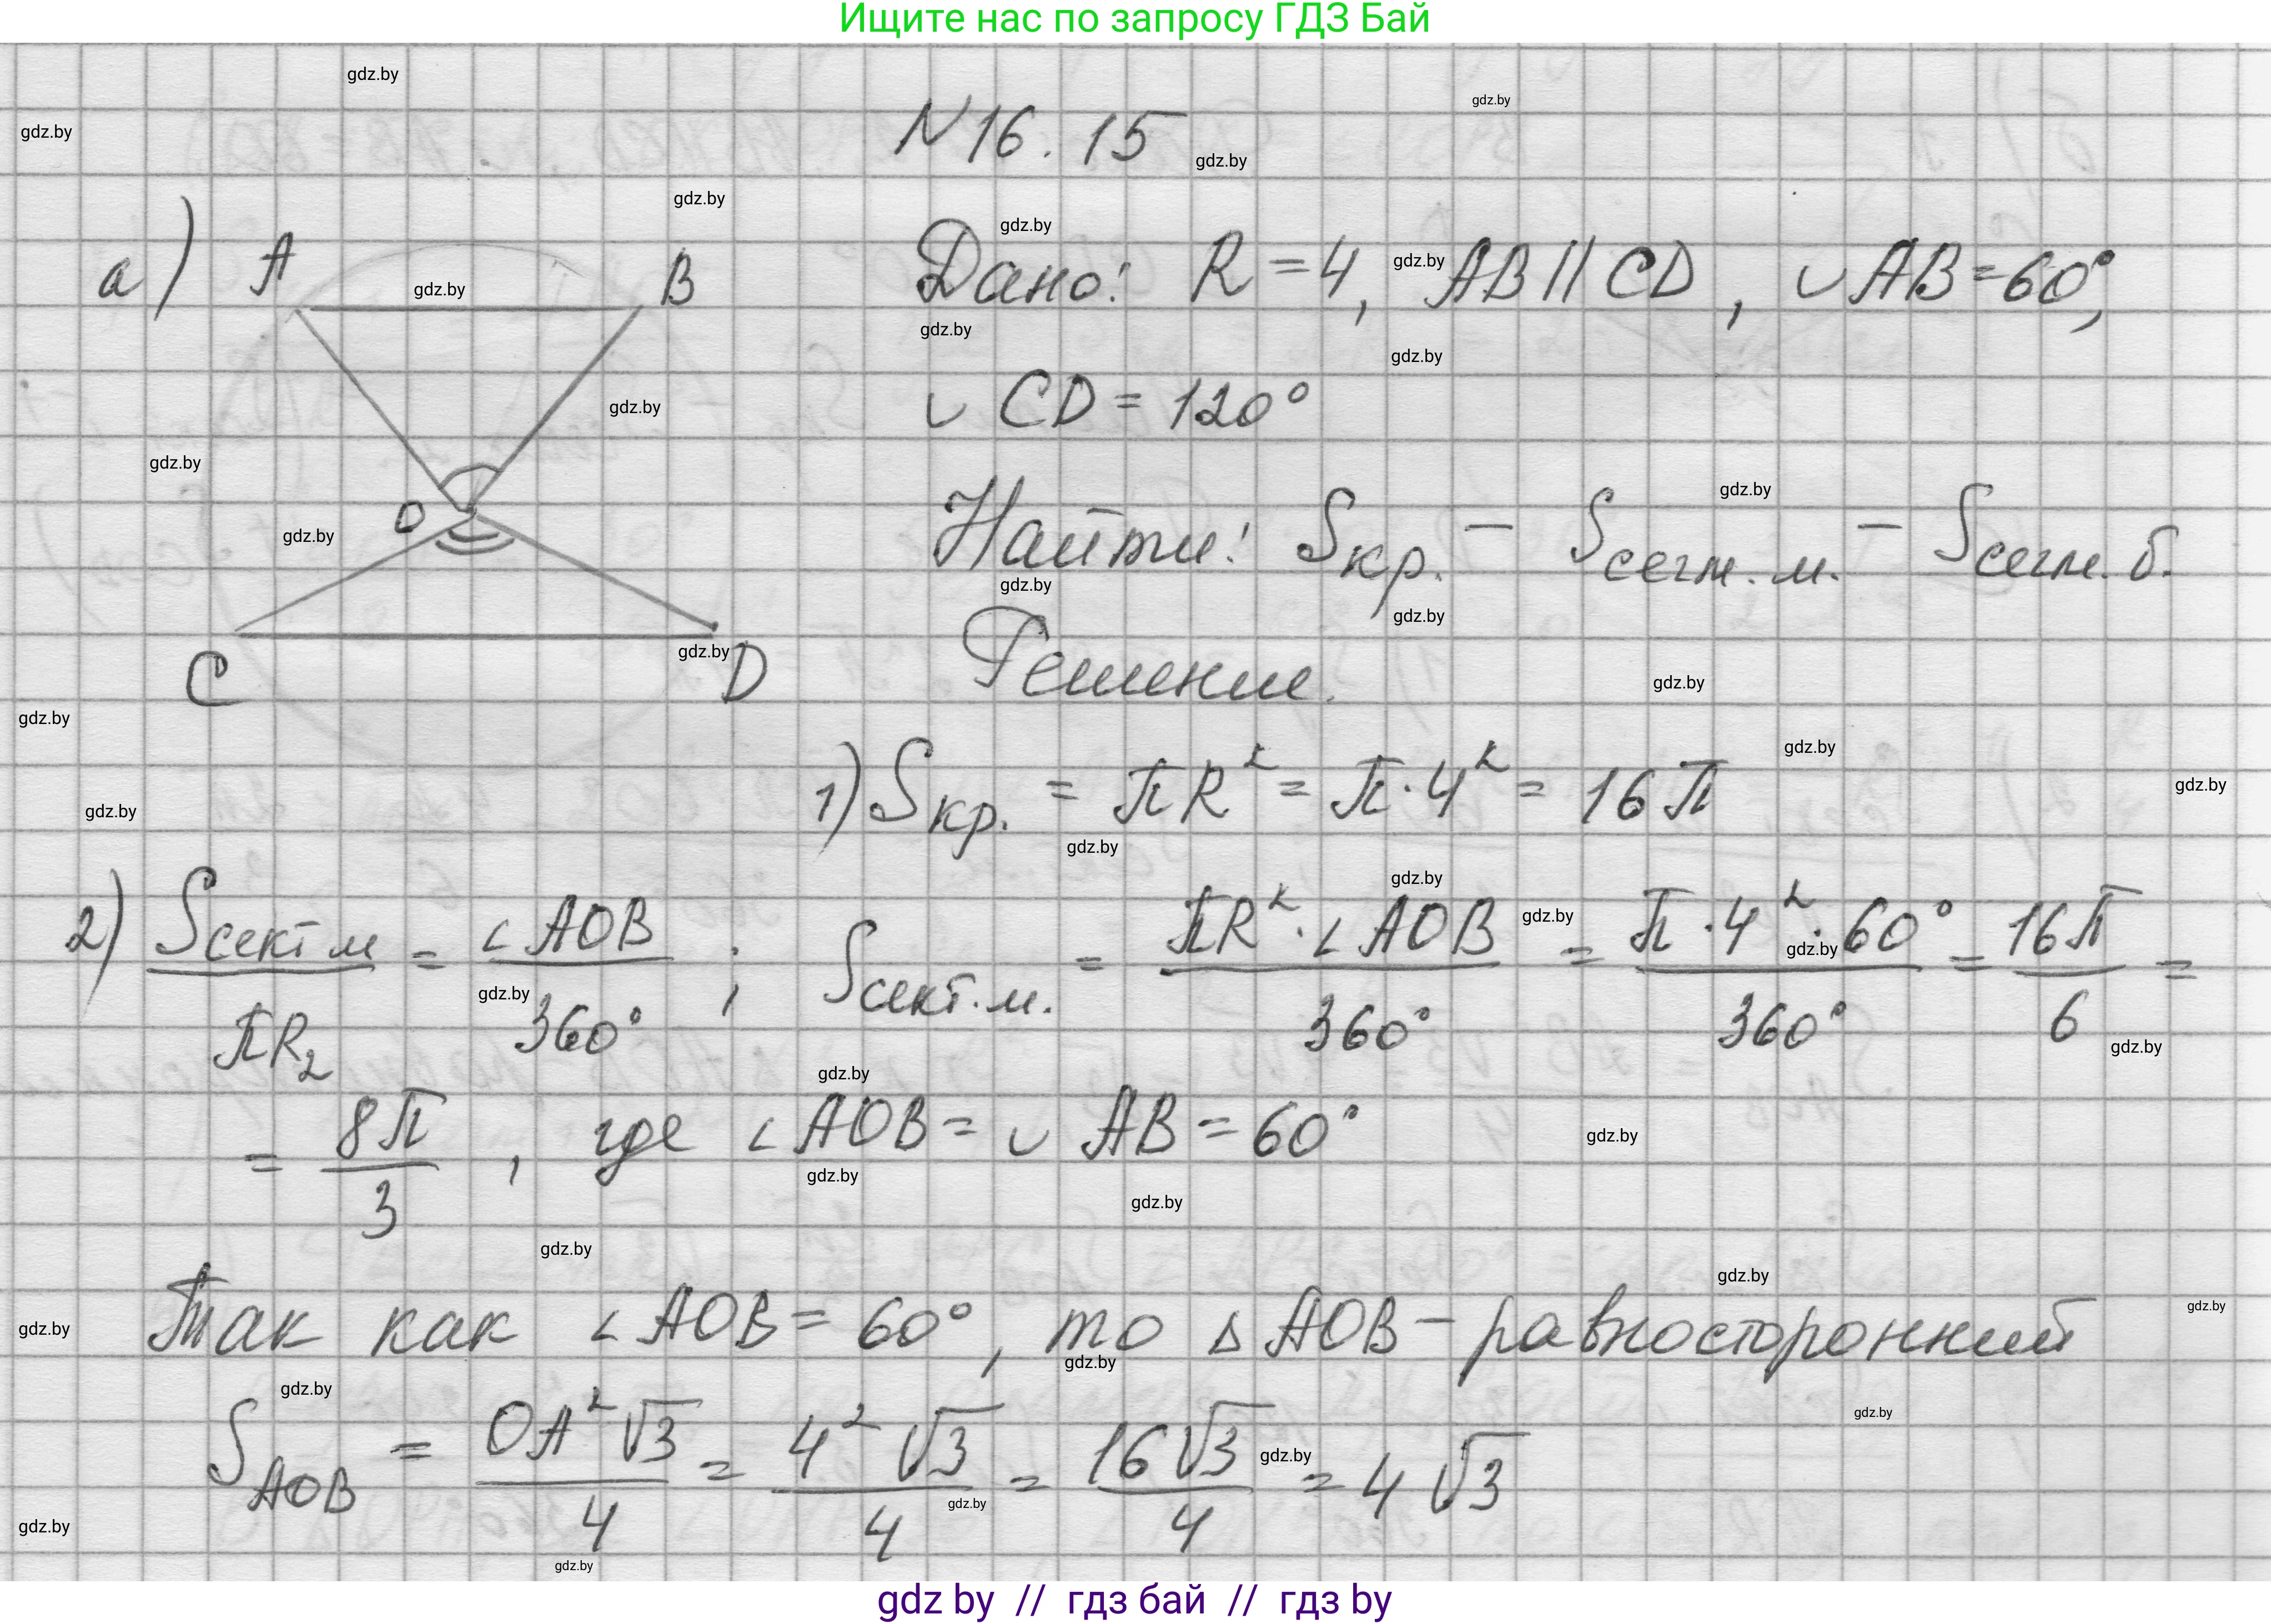 Ищите нас по запросу ГДЗ Бай
N16.15
а) A B Дано: R = 4, AB || CD, ∪AB = 60°,
∪ CD = 120°
O Найти: Sкр. – Sсегм.м. – Sсегм.б.
C D Решение.
1) Sкр. = πR² = π·4² = 16π
2) Sсект м / πR₂ = ∠AOB / 360° ; Sсект.м. = πR²·∠AOB / 360° = π·4²·60° / 360° = 16π / 6 =
= 8π / 3 , где ∠AOB = ∪ AB = 60°
Так как ∠AOB = 60°, то △AOB – равносторонний
S AOB = OA²√3 / 4 = 4²√3 / 4 = 16√3 / 4 = 4√3
gdz by // гдз бай // гдз by